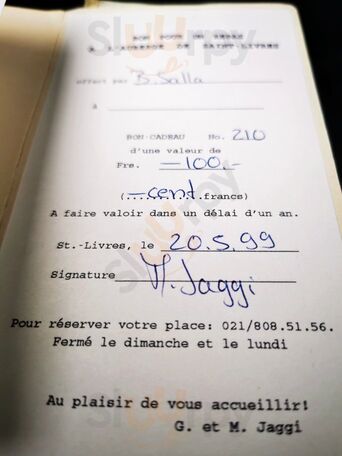 BON POUR UN REPAS
A L'AUBERGE DE SAINT-LIVRES
offert par B. Salla
à
BON-CADEAU No. 210
d'une valeur de
Frs. —100.-
(—cent...francs)
A faire valoir dans un délai d'un an.
St.-Livres, le 20.5.99
Signature M. Jaggi
Pour réserver votre place: 021/808.51.56.
Fermé le dimanche et le lundi
Au plaisir de vous accueillir!
G. et M. Jaggi